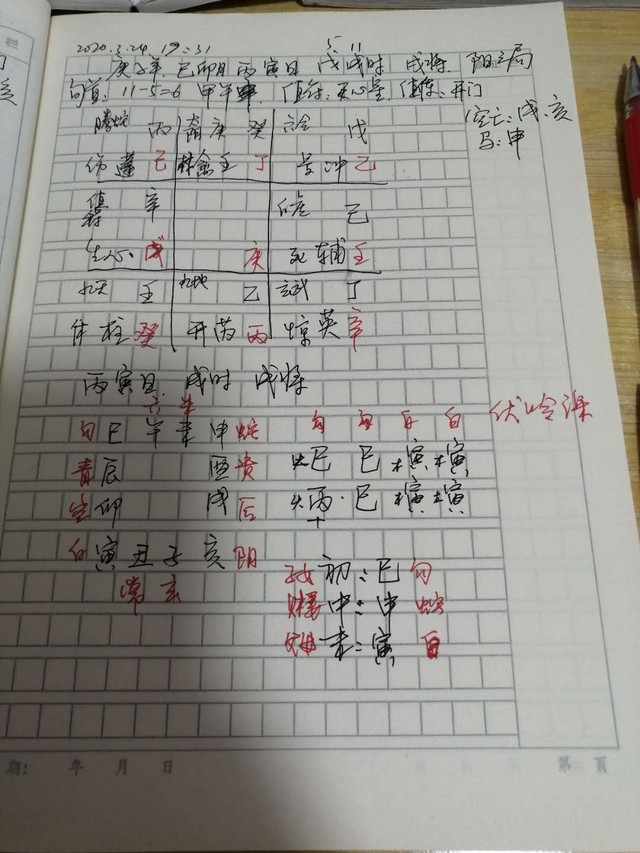 2020.3.24. 19:31
5 11
庚子年 己卯月 丙寅日 戊戌时 戌将 阳三局
旬首: 11-5=6 甲午辛 值符:天心星 值使:开门
空亡:戌.亥
马:申
腾蛇 丙 庚 癸 六合 戊
伤蓬 己 禽壬 丁 冲 己
辛 己
生心 戊 庚 死辅 壬
九天 壬 九地 乙 玄武 丁
休柱 癸 开芮 丙 惊英 辛
丙寅日 戌时 戌将
六 朱
勾 巳 午 未 申 蛇
青 辰 酉 贵
空 卯 戌 后
白 寅 丑 子 亥 阴
常 玄
勾 勾 白 白 伏吟课
巳 巳 寅 寅
丙 巳 寅 寅
初:巳 勾
财 中:申 蛇
末:寅 白
期: 年 月 日
第 页